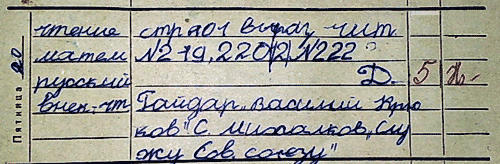 Пятница 20
чтение стр 101 выраз. чит
матем №219, 220(2), №222
русский Д. 5
внек. чт Гайдар „Василий Крю
ков" С. Михалков „Слу
жу Сов. союзу"